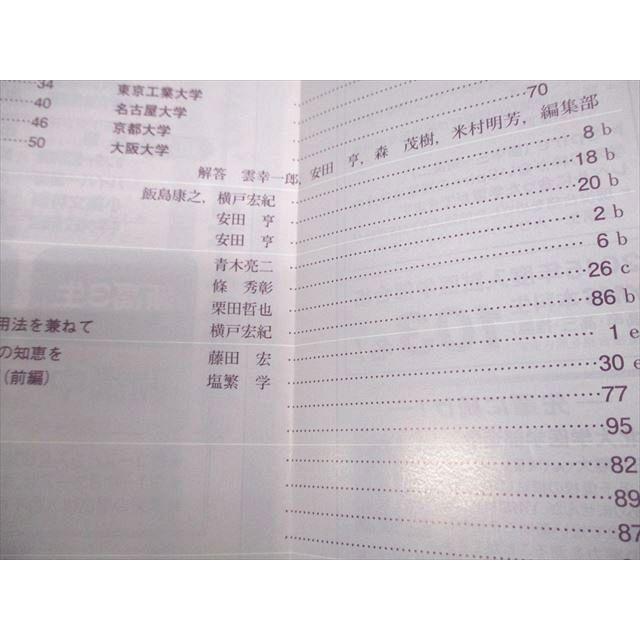 34 東京工業大学 70
40 名古屋大学
46 京都大学
50 大阪大学
解答 雲幸一郎, 安田 亨, 森 茂樹, 米村明芳, 編集部
8 b
飯島康之, 横戸宏紀 18 b
安田 亨 20 b
安田 亨 2 b
青木亮二 6 b
條 秀彰 26 c
栗田哲也 86 b
用法を兼ねて 横戸宏紀 1 e
の知恵を 藤田 宏 30 e
(前編) 塩繁 学 77
95
82
89
87